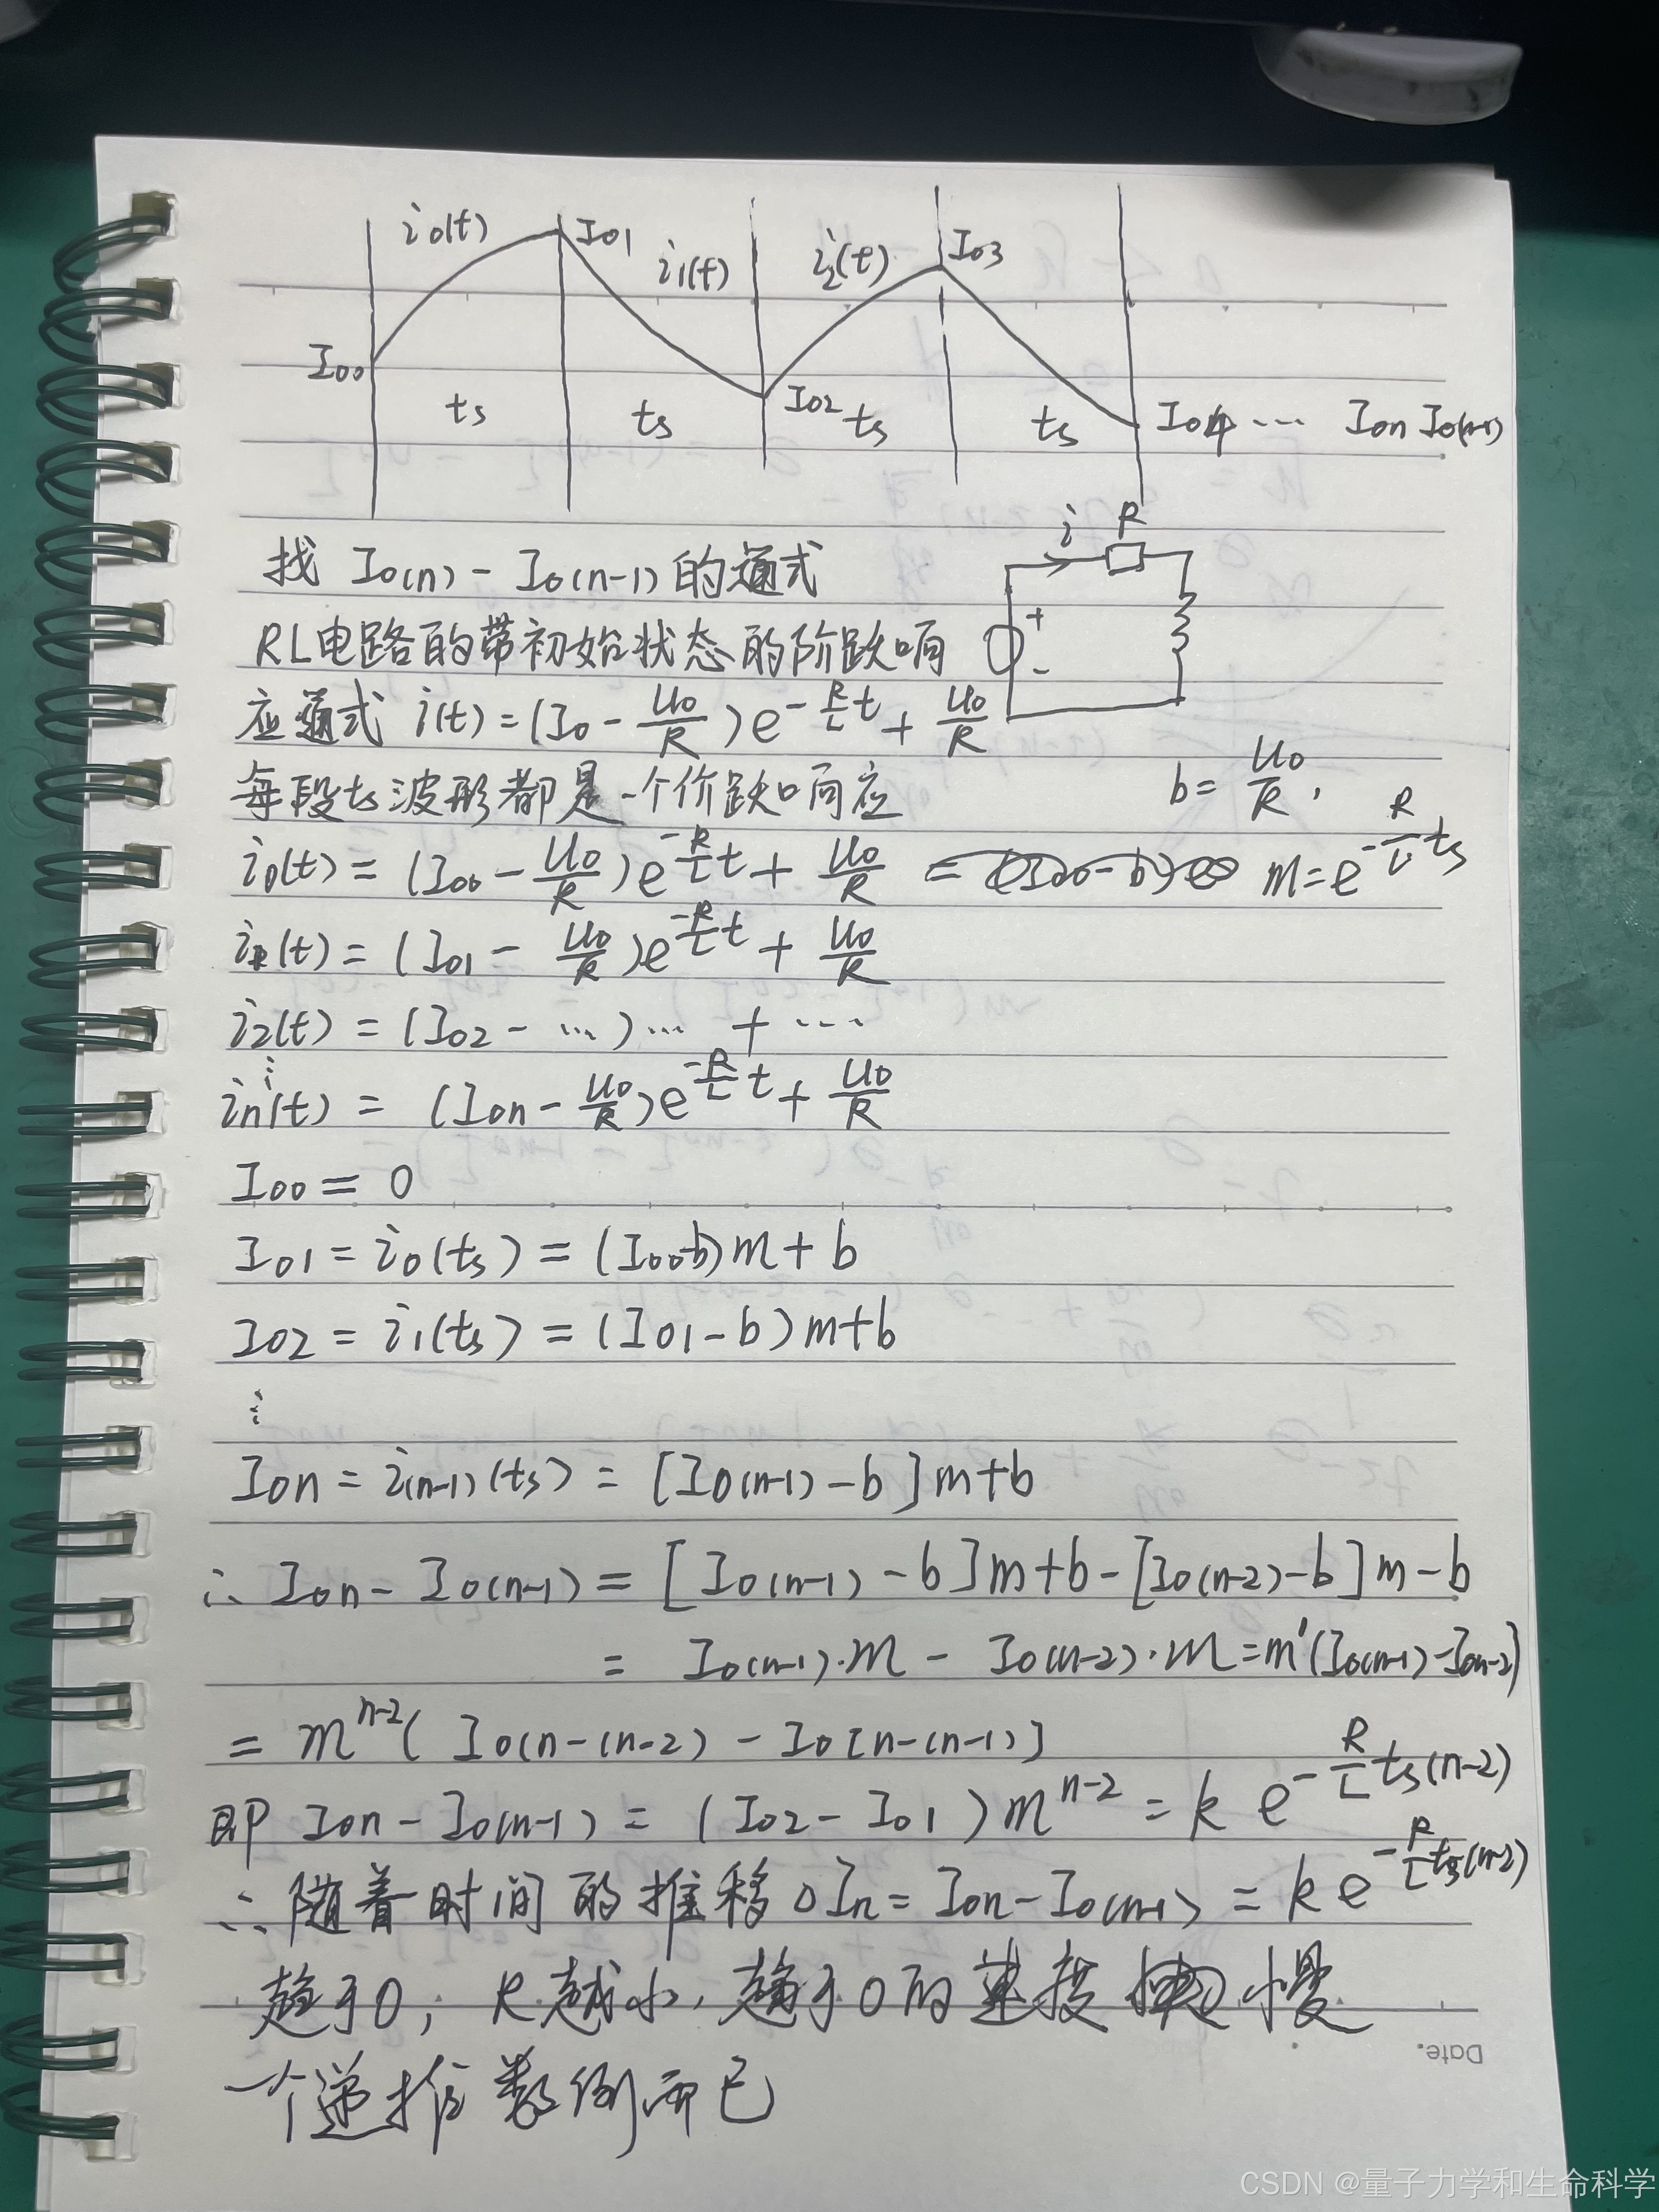 i₀(t) I₀₁ i₁(t) i₂(t) I₀₃
I₀₀ ts ts I₀₂ ts ts I₀₄ ··· I₀n I₀(n-1)
找 I₀(n) - I₀(n-1) 的通式
i R
RL电路的带初始状态的阶跃响
+
-
应通式 i(t) = (I₀ - U₀/R) e^(-R/L t) + U₀/R
每段ts波形都是一个价跃响应
b = U₀/R ,
i₀(t) = (I₀₀ - U₀/R) e^(-R/L t) + U₀/R m = e^(-R/L ts)
i₁(t) = (I₀₁ - U₀/R) e^(-R/L t) + U₀/R
i₂(t) = (I₀₂ - ··· ) ··· + ···
⋮
in(t) = (I₀n - U₀/R) e^(-R/L t) + U₀/R
I₀₀ = 0
I₀₁ = i₀(ts) = (I₀₀-b)m + b
I₀₂ = i₁(ts) = (I₀₁-b)m+b
⋮
I₀n = i(n-1)(ts) = [I₀(n-1) - b]m+b
∴ I₀n - I₀(n-1) = [I₀(n-1) - b]m+b-[I₀(n-2)-b]m-b
= I₀(n-1)·m - I₀(n-2)·m = m¹(I₀(n-1)-I₀n-2)
= m^(n-2) ( I₀(n-(n-2) - I₀[n-(n-1)]
即 I₀n - I₀(n-1) = (I₀₂ - I₀₁) m^(n-2) = k e^(-R/L ts(n-2))
∴ 随着时间的推移 △In = I₀n - I₀(n-1) = k e^(-R/L ts(n-2))
趋于0, R越小, 趋于0的速度 慢
一个递推数列而已
Date.
CSDN @量子力学和生命科学